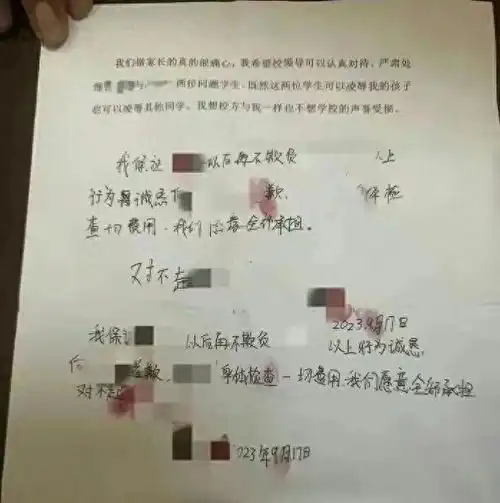 我们做家长的真的很痛心，我希望校领导可以认真对待，严肃处
与 两位问题学生，既然这两位学生可以凌辱我的孩子
也可以凌辱其他同学。我想校方与我一样也不想学校的声誉受损。
我保证 以后再不欺负 以上
行为 诚恳 歉， 体检
查一切费用，我们愿意全部承担。
对不起
2023.9月17日
我保证 以后再不欺负 以上行为诚恳
道歉， 身体检查一切费用，我们愿意全部承担
对不起
2023年9月17日